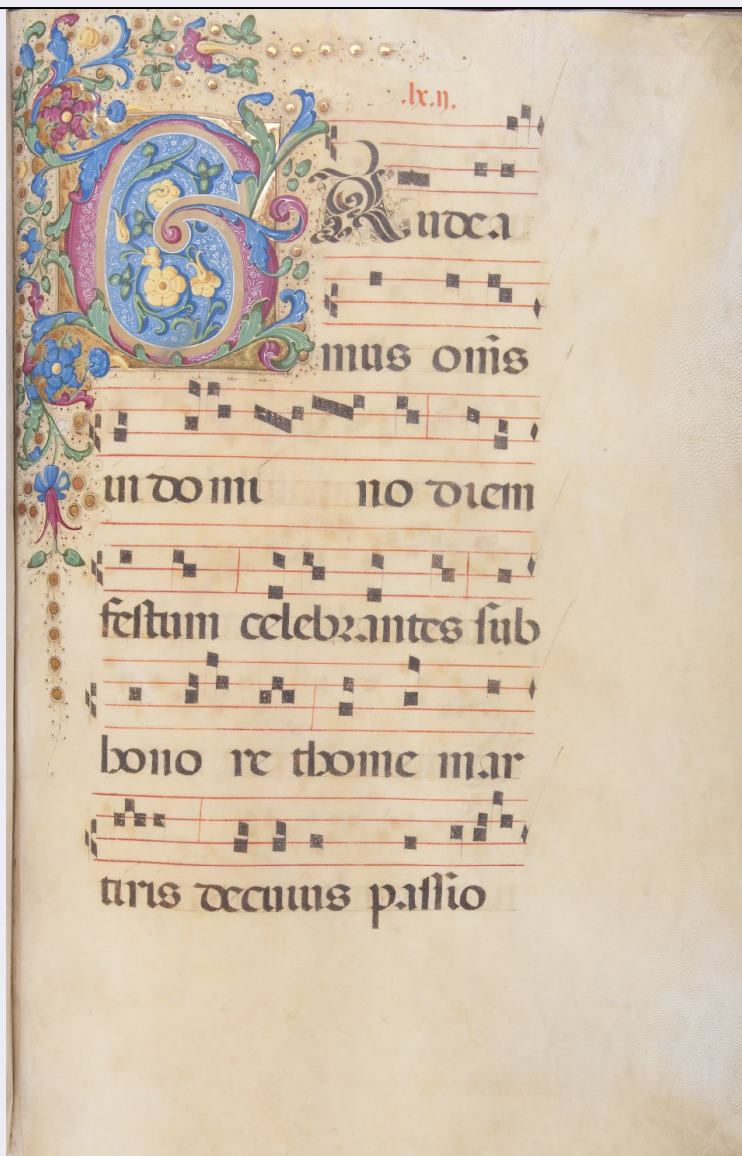 .lx.ij.
GAudea
mus om̃s
in do mi no diem
festum celebrantes sub
hono re thome mar
tiris de cuius passio